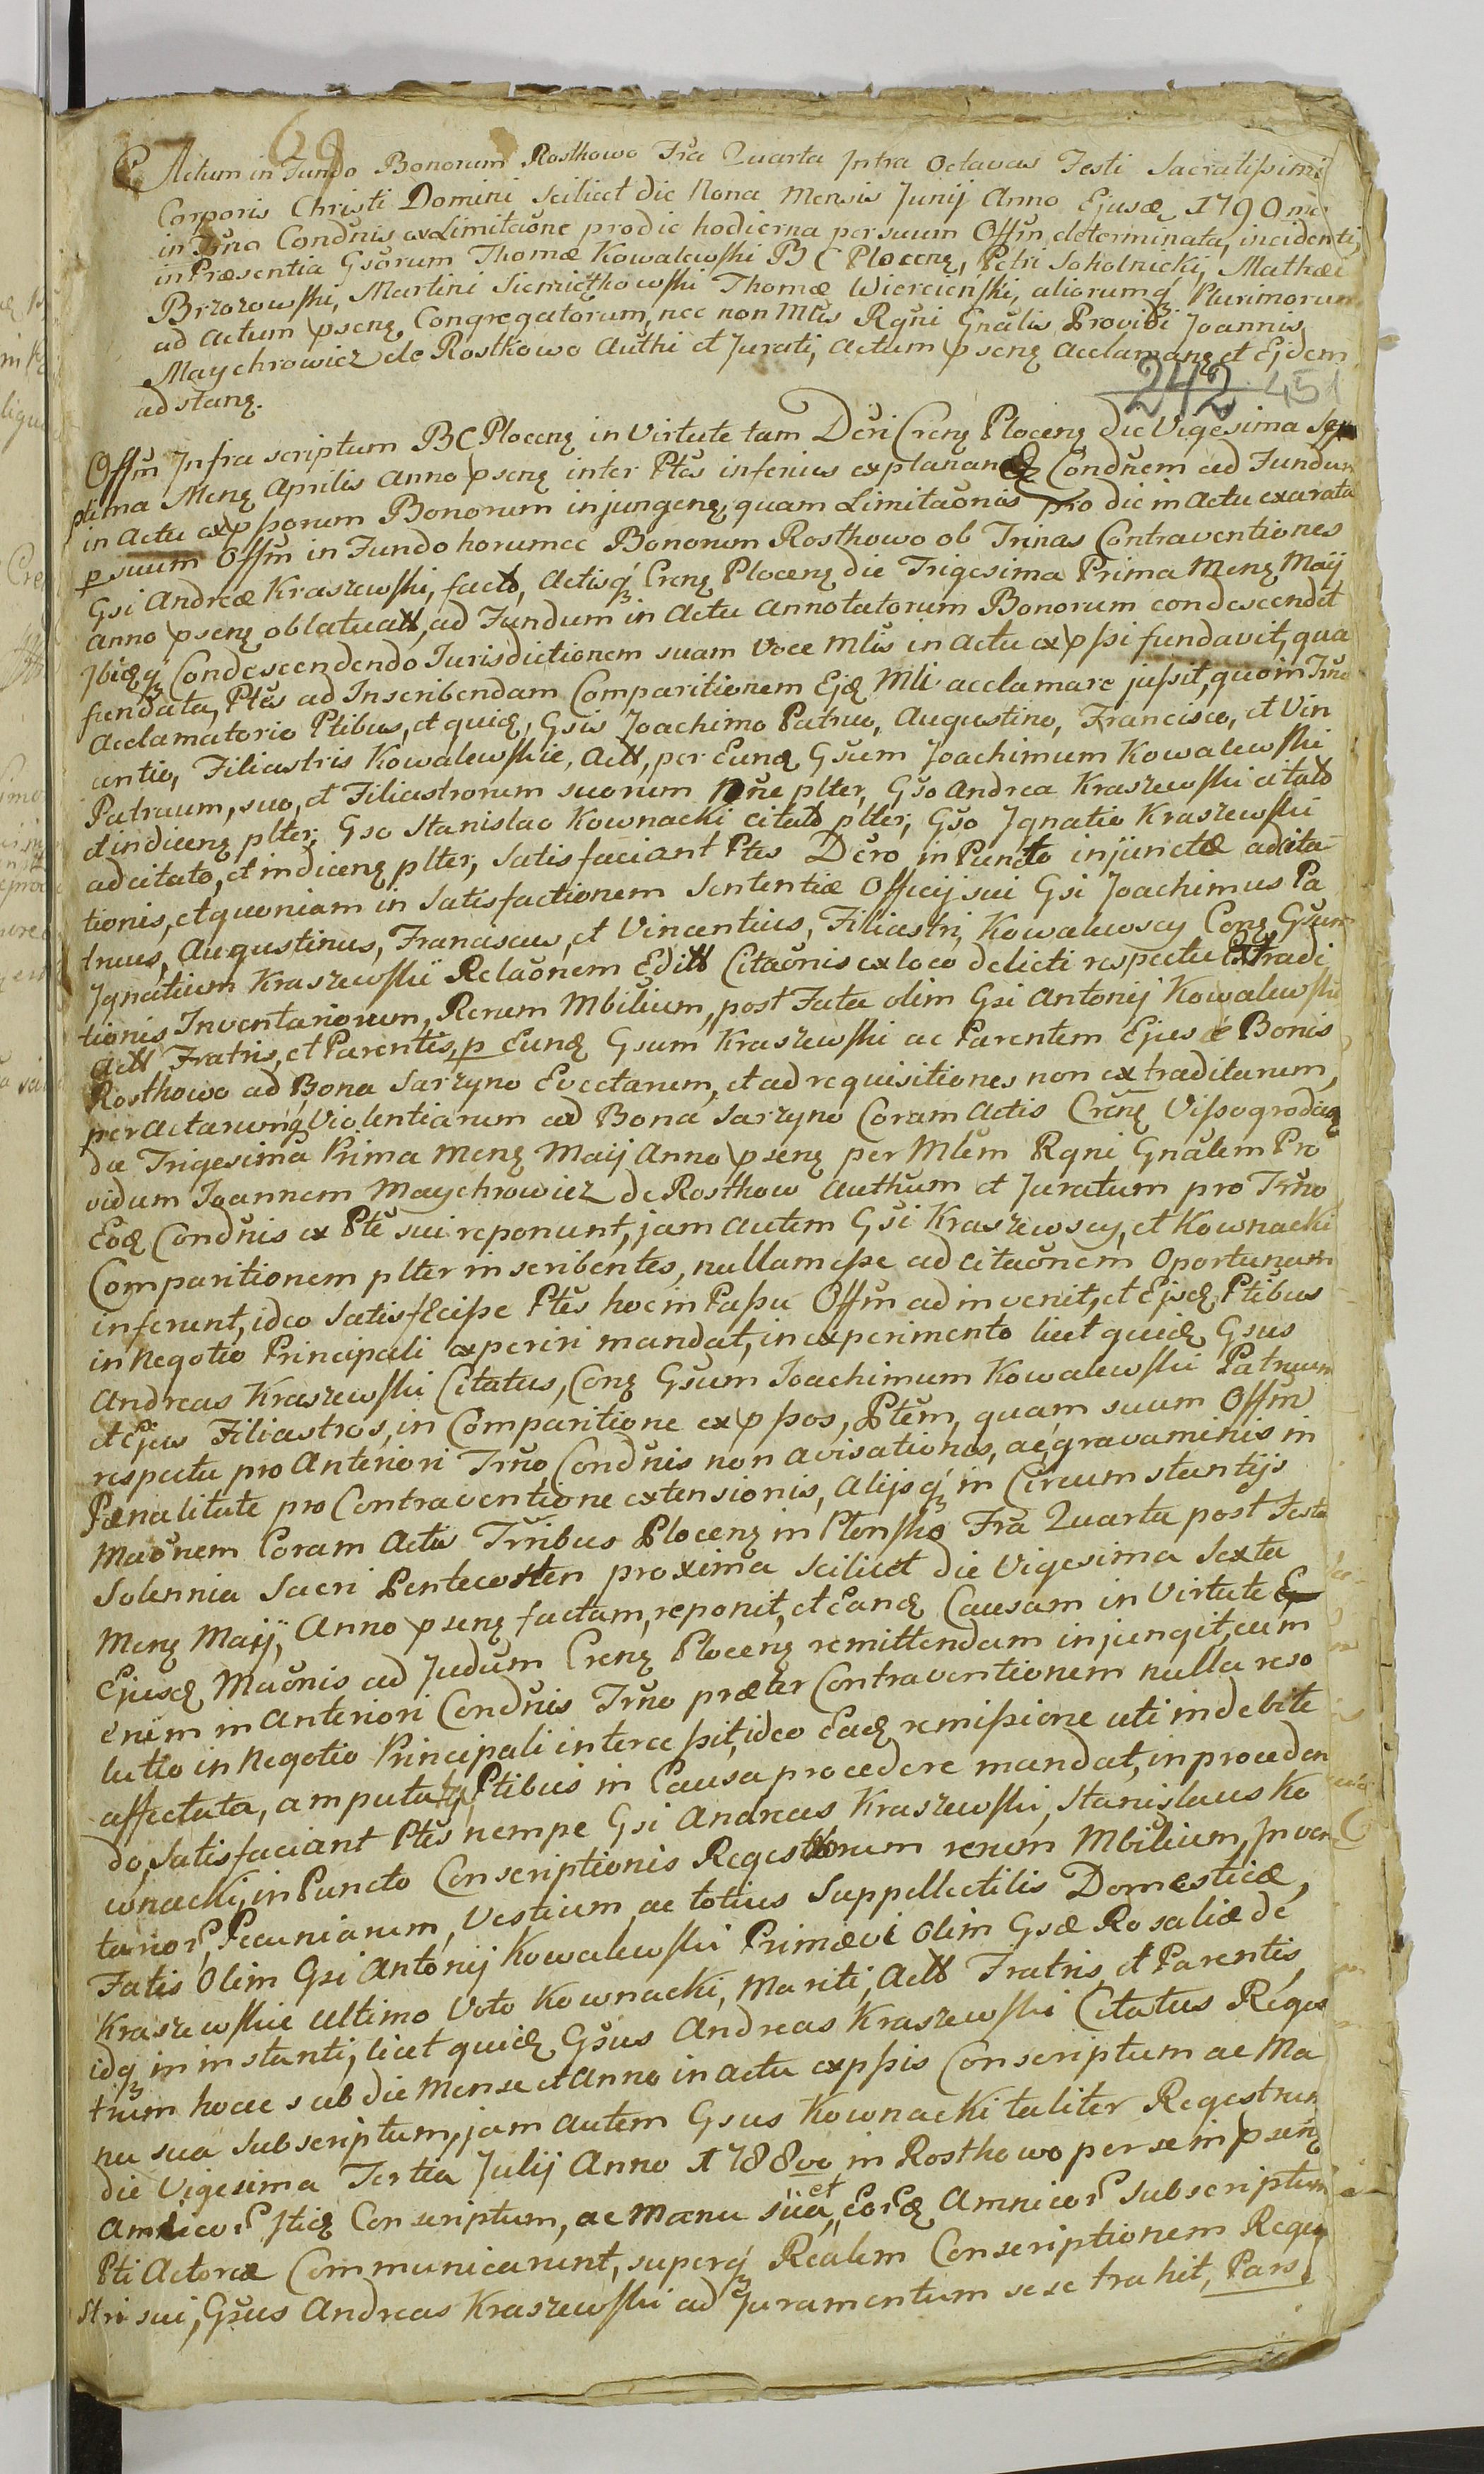 69
Actum in Fundo Bonorum Rostkowo Fra Quarta Intra octavas Festi Sacratissimi
Corporis Christi Domini scilicet die Nona Mensis Junij Anno Ejusd. 1790mo
in Trno Condnis ex Limitaõne pro die hodierna per suum Offm determinata, incidenti,
in Præsentia Gsorum Thomæ Kowalewski B C Plocen, Petri Sokolnicki, Mathæi
Brzozowski, Martini Siemiętkowski Thomæ Wiercieński, aliorumq Plurimorum
ad Actum psen. Congregatorum, nec non Mtis Rgni Gnalis Providi Joannis
Maychrowicz de Rostkowo Authi et Jurati, Actum psen. acclaman. et Ejdem
adstan.
242 451
Offm Infra scriptum BC Plocen. in Virtute tam Dcri Cren. Plocen. die Vigesima Sep
ptima Men. Aprilis Anno psen. inter Ptes inferius explanan. Condnem ad Fundum
in Actu exppsorum Bonorum injungen, quam Limitaõnis pro die in Actu exarata
p suum Offm in Fundo horumce Bonorum Rostkowo ob Trinas Contraventiones
Gsi Andreæ Kraszewski, fact, Actisq Cren. Plocen. die Trigesima Prima Men. Maij
Anno psen. oblatua, ad Fundum in Actu Annotatorum Bonorum condescendit
Ibidq Condescendendo Jurisdictionem suam Voce Mtis in Actu exppsi fundavit, qua
fundata, Ptes ad Inscribendam Comparitionem Ejd. Mti acclamare jussit, quo in Trno
Acclamatorio Ptibus, et quid, Gsis Joachimo Patruo, Augustino, Francisco, et Vin
centio, Filiastris Kowalewskie, Act, per Eund Gsum Joachimum Kowalewski
Patruum, suo, et Filiastrorum suorum Nne plter, Gso Andrea Kraszewski citato
et indicen plter, Gso Stanislao Kownacki citato plter, Gso Ignatio Kraszewski
adcitato, et indicen plter, satisfaciant Ptes Dcro in Puncto injunctæ adcita
tionis, et quoniam in Satisfactionem Sententiæ Officij sui Gsi Joachimus Pa
truus, Augustinus, Franciscus, et Vincentius, Filiastri, Kowalewscy Con. Gsum
Ignatium Kraszewski Relaõnem Edit Citaõnis ex loco delicti respectu Extradi
tionis Inventariorum, Rerum Mbilium, post Fata olim Gsi Antonij Kowalewski
Act Fratris, et Parentis, p Eund Gsum Kraszewski ac Parentem Ejus è Bonis
Rostkowo ad Bona Sarzyno Evectarum, et ad requisitiones non extraditarum,
peractarumq Violentiarum ad Bona Sarzyno Coram Actis Cren. Vissogrodien
die Trigesima Prima Men. Maij Anno psen. per Mtem Rgni Gnalem Pro
vidum Joannem Maychrowicz de Rostkow Authum et Juratum pro Trno
Eod Condnis ex Pte sui reponunt, jam autem Gsi Kraszewscy, et Kownacki
Comparitionem plter inscribentes, nullam esse adcitaõnem Oportunam
inferunt, ideo Satisfecisse Ptes hoc in Passu Offm adinvenit, et Ejsd Ptibus
in Negotio Principali experiri mandat, in experimento licet quid Gsus
Andreas Kraszewski Citatus, Con. Gsum Joachimum Kowalewski Patruum
et Ejus Filiastros, in Comparitione exppsos, Ptem, quam suum Offm
respectu pro Anteriori Trno Condnis non avisationis, ac gravaminis in
Pœnalitate pro Contraventione extensionis, Alijsq in Circumstantijs
Maõnem Coram Actis Trribus Plocen. in Plonsko Fra Quarta post Festa
Solennia Sacri Pentecosten proxima scilicet die Vigesima Sexta
Men. Maij, Anno psen. factam, reponit, et Eand Causam in Virtute
Ejusd Maõnis ad Judum Cren. Plocen. remittendam injungit, cum
enim in Anteriori Condnis Trno præter Contraventionem nulla reso
lutio in Negotio Principali intercessit, ideo Ead remissione uti indebite
affectata, amputata, Ptibus in Causa procedere mandat, in proceden
do, Satisfaciant Ptes nempe Gsi Andreas Kraszewski, Stanislaus Ko
wnacki, in Puncto Conscriptionis Regestrorum rerum Mbilium, Inven
tarior, Pecuniarum, Vestium ac totius Suppellectilis Domesticæ,
Fatis Olim Gsi Antonij Kowalewski Primævi olim Gsæ Rosaliæ de
Kraszewskie Ultimo Voto Kownacki, Mariti, Act Fratris, et Parentis,
idq in instanti, licet quid Gsus Andreas Kraszewski Citatus Reges
trum hocce sub die Mense et Anno in Actu exppsis Conscriptum ac Ma
nu sua Subscriptum, jam autem Gsus Kownacki taliter Regestrum
die Vigesima Tertia Julij Anno 1788vo in Rostkowo per se in psen
Amicor Itid Conscriptum, ac Manu sua, et Eord Amicor Subscriptum
Pti Actoreæ Communicarunt, superq Realem Conscriptionem Rege
stri sui, Gsus Andreas Kraszewski ad Juramentum sese trahit, Pars